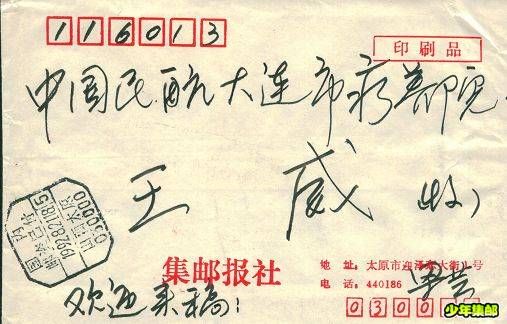 116013
印刷品
中国民航大连市疗养院
王 威 (收)
集邮报社
地 址: 太原市迎泽东大街 号
电 话: 440186
欢迎来稿!
0300
少年集邮